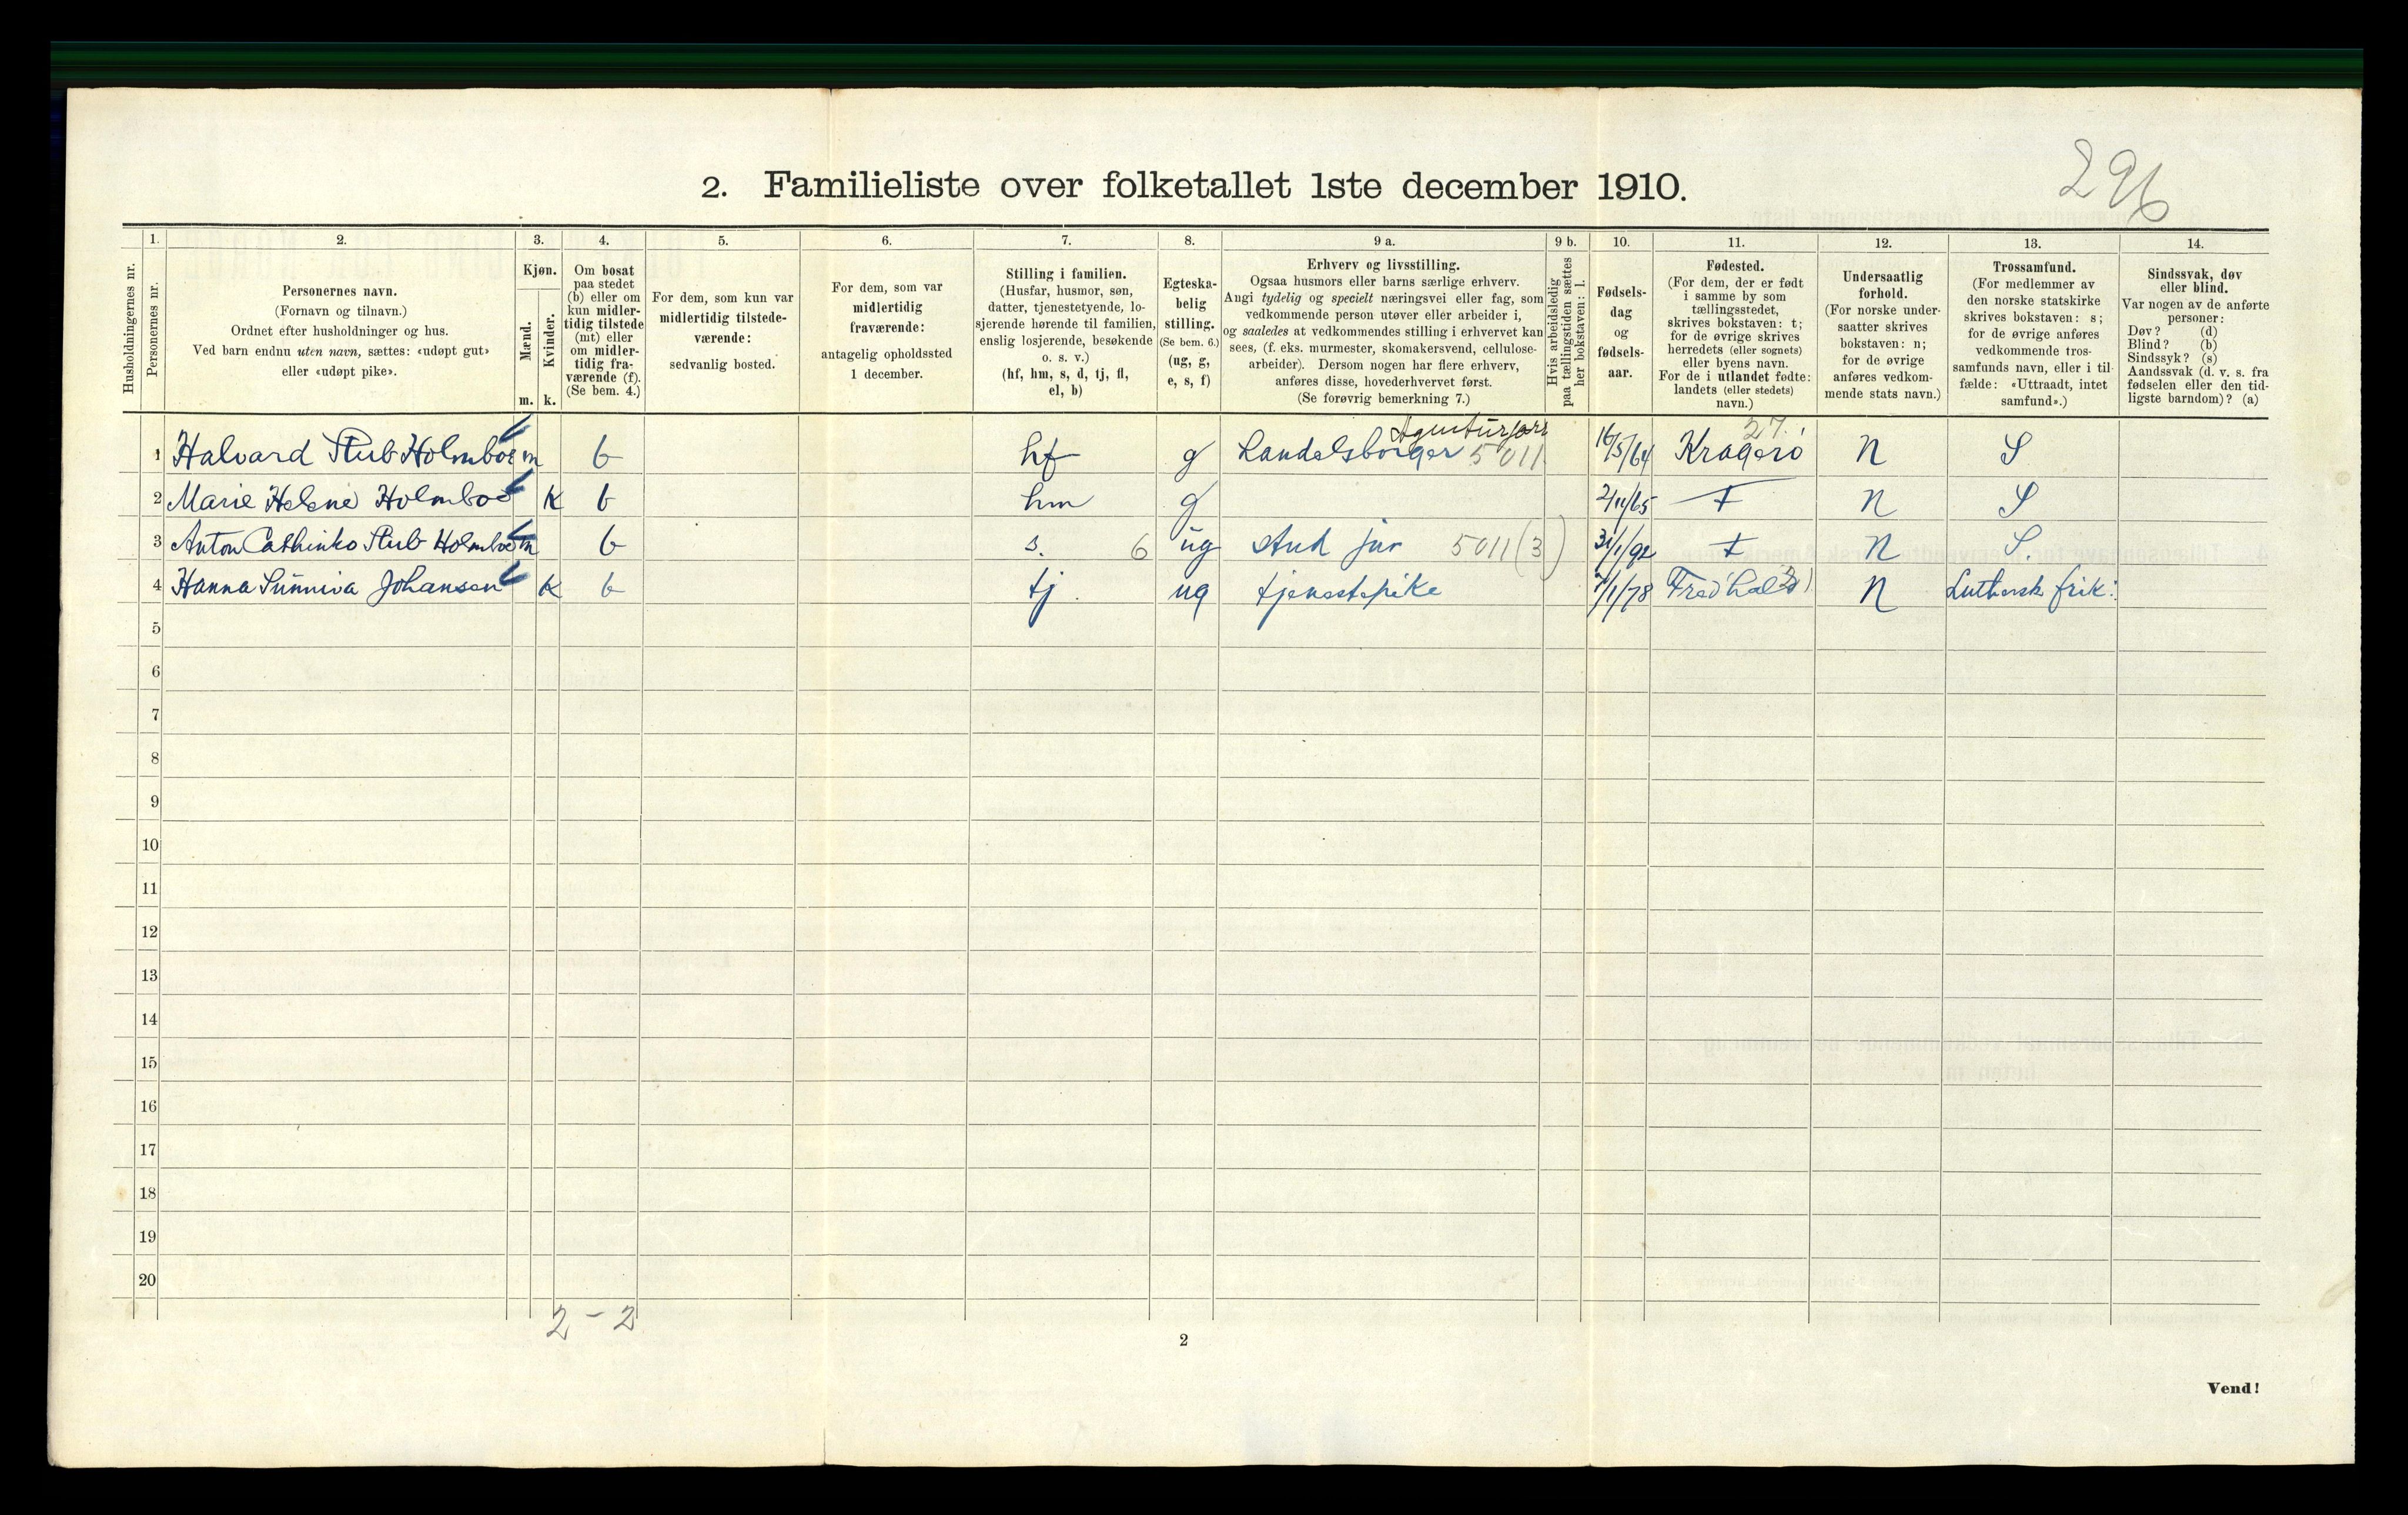 296
2. Familieliste over folketallet 1ste december 1910.
1. 2. 3. 4. 5. 6. 7. 8. 9 a. 9 b. 10. 11. 12. 13. 14.
Husholdningernes nr.
Personernes nr.
Personernes navn.
(Fornavn og tilnavn.)
Ordnet efter husholdninger og hus.
Ved barn endnu uten navn, sættes: «udøpt gut»
eller «udøpt pike».
Kjøn.
Mænd.
Kvinder.
m. k.
Om bosat
paa stedet
(b) eller om
kun midler-
tidig tilstede
(mt) eller
om midler-
tidig fra-
værende (f).
(Se bem. 4.)
For dem, som kun var
midlertidig tilstede-
værende:
sedvanlig bosted.
For dem, som var
midlertidig
fraværende:
antagelig opholdssted
1 december.
Stilling i familien.
(Husfar, husmor, søn,
datter, tjenestetyende, lo-
sjerende hørende til familien,
enslig losjerende, besøkende
o. s. v.)
(hf, hm, s, d, tj, fl,
el, b)
Egteska-
belig
stilling.
(Se bem. 6.)
(ug, g,
e, s, f)
Erhverv og livsstilling.
Ogsaa husmors eller barns særlige erhverv.
Angi tydelig og specielt næringsvei eller fag, som
vedkommende person utøver eller arbeider i,
og saaledes at vedkommendes stilling i erhvervet kan
sees, (f. eks. murmester, skomakersvend, cellulose-
arbeider). Dersom nogen har flere erhverv,
anføres disse, hovederhvervet først.
(Se forøvrig bemerkning 7.)
Hvis arbeidsledig
paa tællingstiden sættes
her bokstaven: l.
Fødsels-
dag
og
fødsels-
aar.
Fødested.
(For dem, der er født
i samme by som
tællingsstedet,
skrives bokstaven: t;
for de øvrige skrives
herredets (eller sognets)
eller byens navn.
For de i utlandet fødte:
landets (eller stedets)
navn.)
Undersaatlig
forhold.
(For norske under-
saatter skrives
bokstaven: n;
for de øvrige
anføres vedkom-
mende stats navn.)
Trossamfund.
(For medlemmer av
den norske statskirke
skrives bokstaven: s;
for de øvrige anføres
vedkommende tros-
samfunds navn, eller i til-
fælde: «Uttraadt, intet
samfund».)
Sindssvak, døv
eller blind.
Var nogen av de anførte
personer:
Døv? (d)
Blind? (b)
Sindssyk? (s)
Aandssvak (d. v. s. fra
fødselen eller den tid-
ligste barndom)? (a)
1 Halvard Stub Holmboe m b hf g Handelsborger 5011 16/5/64 Kragerø 27. N S
2 Marie Helene Holmboe K b hm g 2/11/65 t N S
3 Anton Cathinko Stub Holmboe m b s. 6 ug Stud jur 5011(3) 31/1/92 t N S.
4 Hanna Sunniva Johansen K b tj. ug tjenestepike 7/1/78 Fred'hald N Luthersk frik:
5
6
7
8
9
10
11
12
13
14
15
16
17
18
19
20
2 - 2
2
Vend!